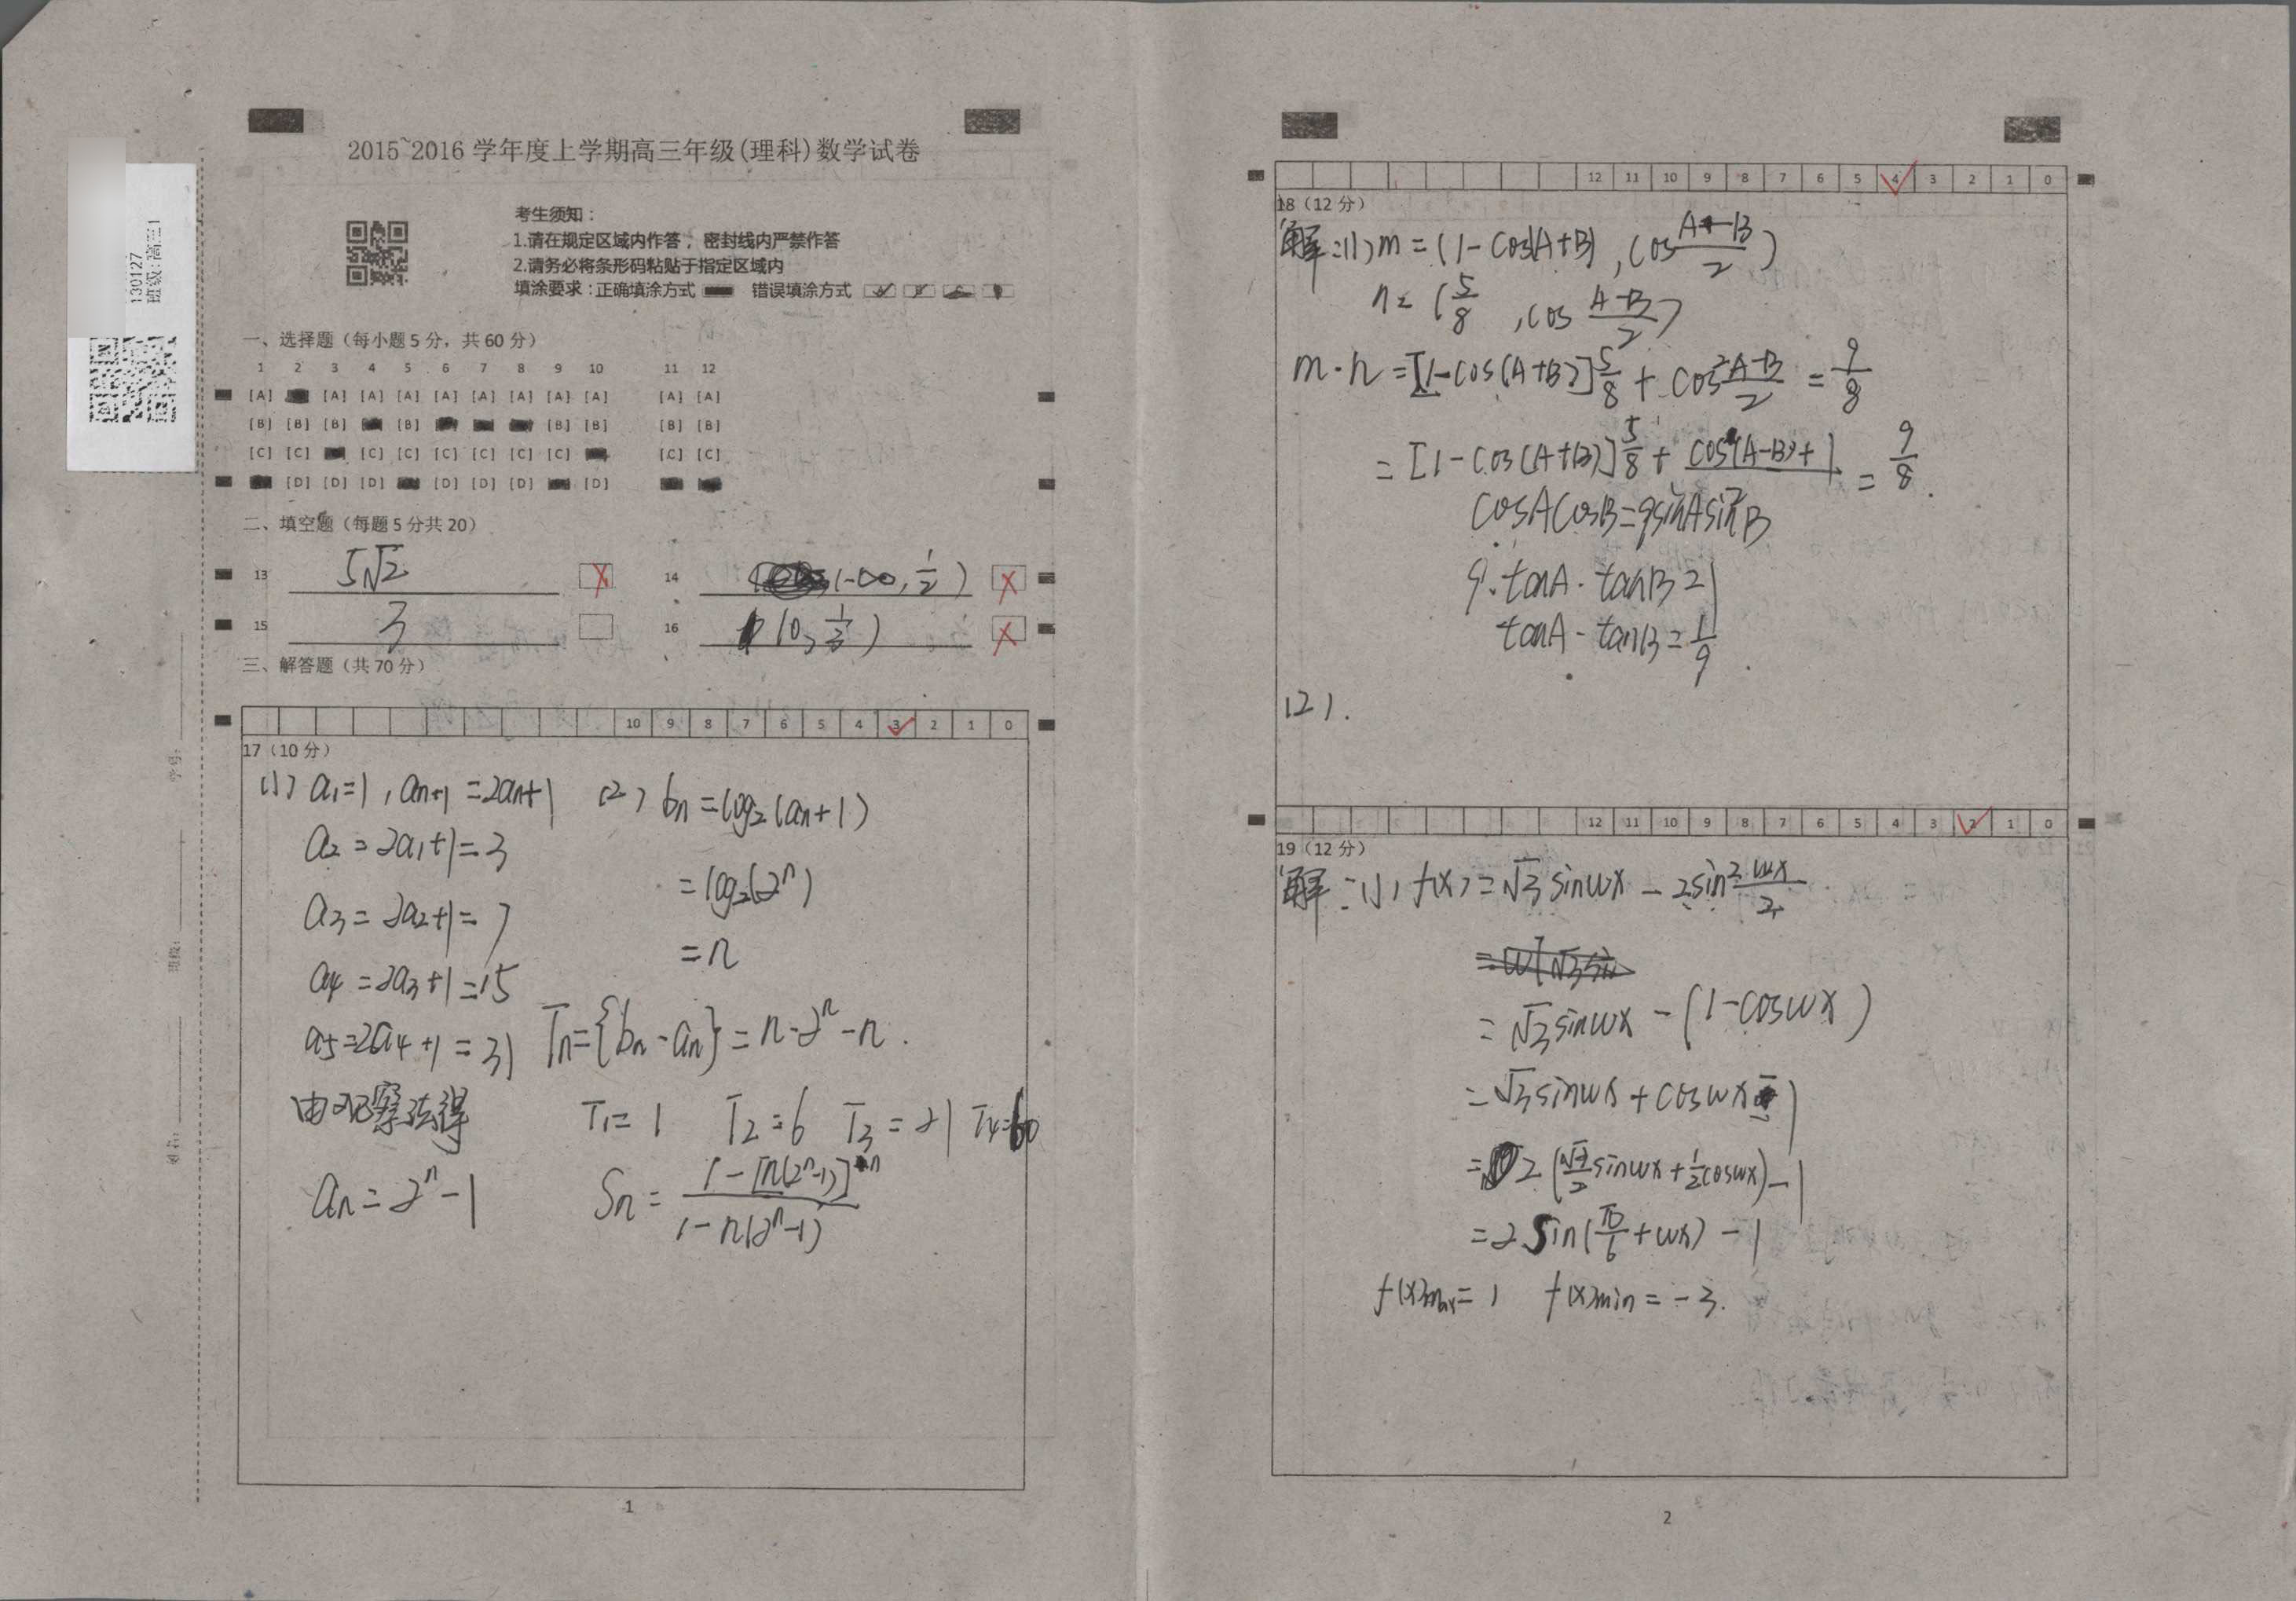 2015~2016 学年度上学期高三年级(理科)数学试卷
130127
班级:高三1
考生须知：
1.请在规定区域内作答，密封线内严禁作答
2.请务必将条形码粘贴于指定区域内
填涂要求：正确填涂方式 错误填涂方式
一、选择题（每小题 5 分，共 60 分）
1 2 3 4 5 6 7 8 9 10 11 12
[A] [A] [A] [A] [A] [A] [A] [A] [A] [A] [A]
[B] [B] [B] [B] [B] [B] [B] [B]
[C] [C] [C] [C] [C] [C] [C] [C] [C] [C]
[D] [D] [D] [D] [D] [D] [D]
二、填空题（每题 5 分共 20）
13 5√2 14 (-∞,1/2)
15 3 16 (0,1/3)
三、解答题（共 70 分）
10 9 8 7 6 5 4 3 2 1 0
17（10 分）
(1) a₁=1, aₙ₊₁=2aₙ+1
a₂=2a₁+1=3
a₃=2a₂+1=7
a₄=2a₃+1=15
a₅=2a₄+1=31
由观察法得
aₙ=2ⁿ-1
(2) bₙ=log₂(aₙ+1)
=log₂(2ⁿ)
=n
Tₙ={bₙ·aₙ}=n·2ⁿ-n.
T₁=1 T₂=6 T₃=21 T₄=60
Sₙ=(1-[n(2ⁿ-1)]ⁿ)/(1-n(2ⁿ-1))
1
12 11 10 9 8 7 6 5 4 3 2 1 0
18（12 分）
解:(1) m=(1-cos(A+B), cos (A-B)/2)
n=(5/8, cos (A-B)/2)
m·n=[1-cos(A+B)]5/8+cos²(A-B)/2=9/8
=[1-cos(A+B)]5/8+(cos(A-B)+1)/ =9/8.
cosAcosB=9sinAsinB
9·tanA·tanB=1
tanA·tanB=1/9.
(2).
12 11 10 9 8 7 6 5 4 3 2 1 0
19（12 分）
解:(1) f(x)=√3sinwx-2sin²wx/2
=√3sinwx-(1-coswx)
=√3sinwx+coswx-1
=2(√3/2sinwx+1/2coswx)-1
=2Sin(π/6+wx)-1
f(x)max=1 f(x)min=-3.
2
学号:
班级:
姓名: